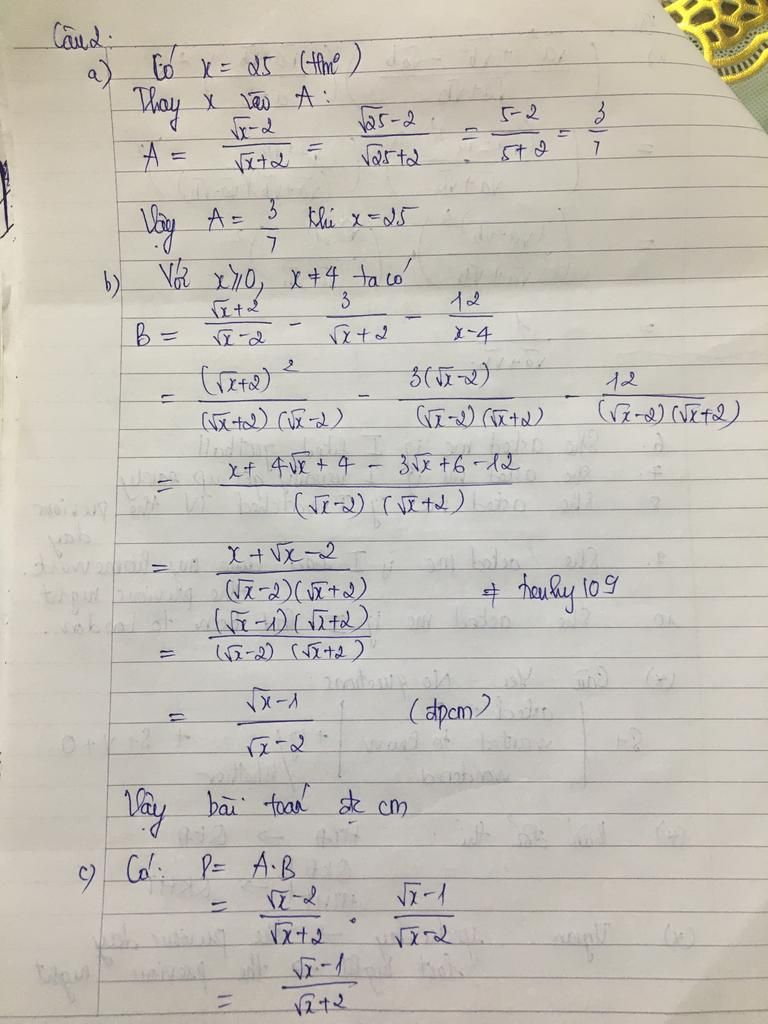 Câu 2:
a) Có x = 25 (tmđ)
Thay x vào A:
A = √x-2 / √x+2 = √25-2 / √25+2 = 5-2 / 5+2 = 3/7
Vậy A = 3/7 khi x = 25
b) Với x ≥ 0, x ≠ 4 ta có
B = √x+2 / √x-2 - 3 / √x+2 - 12 / x-4
= (√x+2)² / (√x+2)(√x-2) - 3(√x-2) / (√x-2)(√x+2) - 12 / (√x-2)(√x+2)
= x + 4√x + 4 - 3√x + 6 - 12 / (√x-2)(√x+2)
= x + √x - 2 / (√x-2)(√x+2)
109
= (√x-1)(√x+2) / (√x-2)(√x+2)
= √x-1 / √x-2 (đpcm)
Vậy bài toán đc cm
c) Có: P = A.B
= √x-2 / √x+2 . √x-1 / √x-2
= √x-1 / √x+2